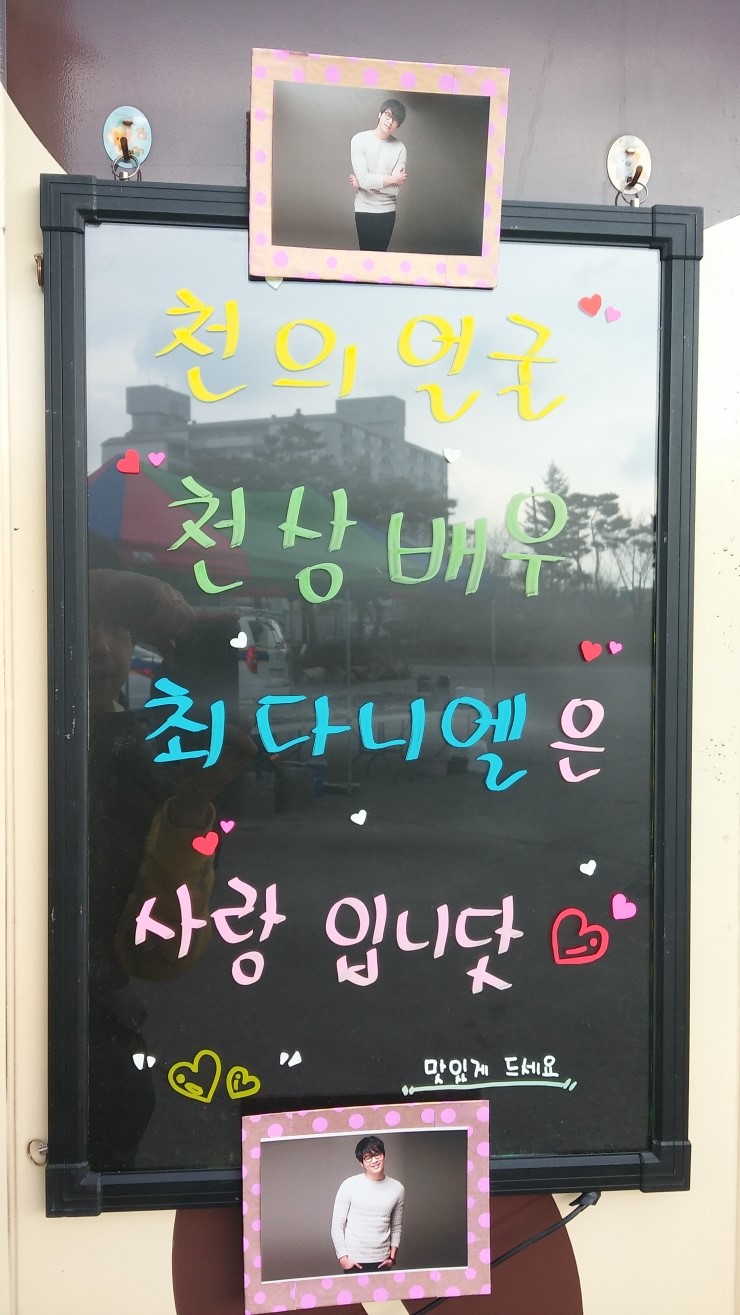 천의 얼굴
천상 배우
최 다니엘은
사랑 입니닷
" "
맛있게 드세요